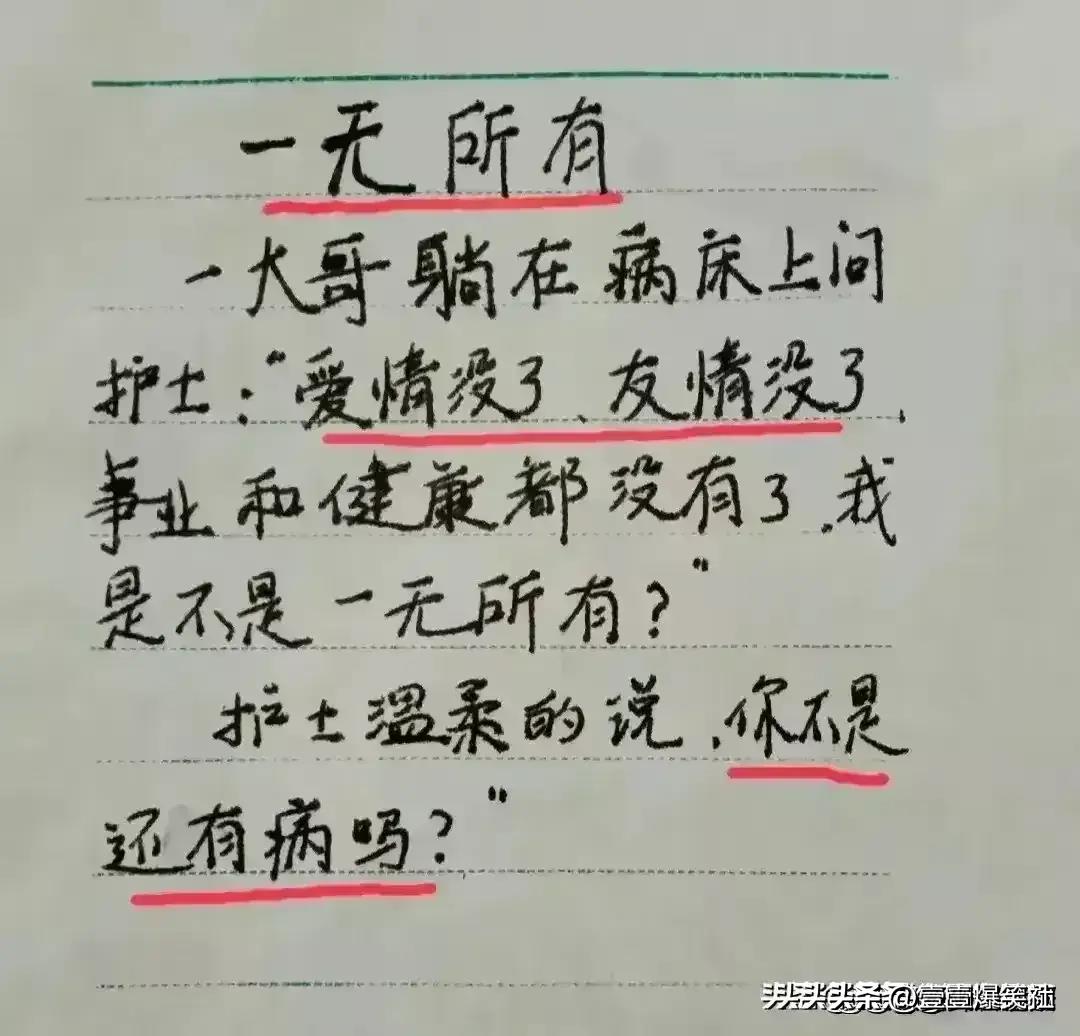 一无所有
一大哥躺在病床上问
护士:“爱情没了、友情没了,
事业和健康都没有了,我
是不是一无所有?”
护士温柔的说,你不是
还有病吗?”
头条 @壹壹爆笑社